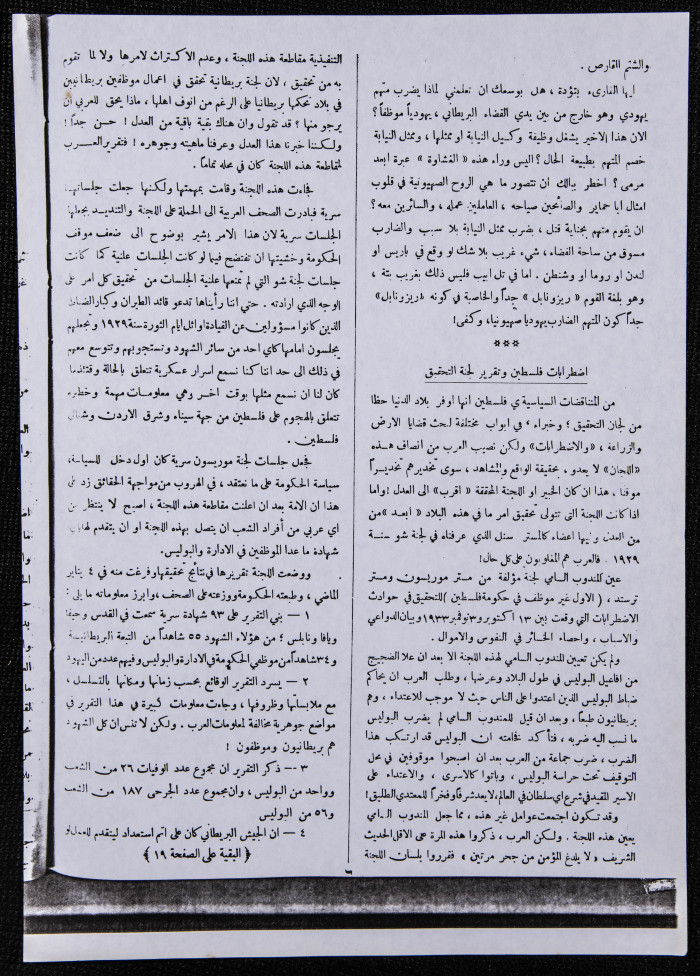 والشتم القارص .
ايها القارىء بتؤدة ، هل بوسعك ان تعلمني لماذا يضرب متهم
يهودي وهو خارج من بين يدي القضاء البريطاني ، يهودياً موظفاً ؟
الان هذا الاخير يشغل وظيفة وكيل النيابة او ممثلها ، وممثل النيابة
خصم المتهم بطبيعة الحال ؟ اليس وراء هذه « الغشاوة » عبرة ابعد
مرمى ؟ اخطر ببالك ان تتصور ما هي الروح الصهيونية في قلوب
امثال ابا حماير والصائحين صياحه ، العاملين عمله ، والسائرين معه ؟
ان يقوم متهم بجناية قتل ، بضرب ممثل النيابة بلا سبب والضارب
مسوق من ساحة القضاء ، شيء غريب بلا شك لو وقع في باريس او
لندن او روما او وشنطن . اما في تل ابيب فليس ذلك بغريب بتة ،
وهو بلغة القوم « ريزونابل » جداً والخاصية في كونه «ريزونابل»
جداً كون المتهم الضارب يهودياً صهيونيا، وكفى !
***
اضطرابات فلسطين وتقرير لجنة التحقيق
من المتناقضات السياسية في فلسطين انها اوفر بلاد الدنيا حظا
من لجان التحقيق ؛ وخبراء ، في ابواب مختلفة لبحث قضايا الارض
والزراعة ، «والاضطرابات» ولكن نصيب العرب من انصاف هذه
«اللجان» لا يعدو . بحقيقة الواقع والمشاهد ، سوى تخديرهم تخديراً
موقتا . هذا ان كان الخبير او اللجنة المحققة « اقرب» الى العدل ! واما
اذا كانت اللجنة التي تتولى تحقيق امر ما في هذه البلاد « ابعد »من
من العدل وفيها اعضاء كالمستر سنل الذي عرفناه في لجنة شو سنة
١٩٢٩ . فالعرب هم المغلوبون على كل حال !
عين المندوب السامي لجنة مؤلفة من مستر موريسون ومستر
ترستد ، ( الاول غير موظف في حكومة فلسطين ) للتحقيق في حوادث
الاضطرابات التي وقعت بين ١٣ اكتوبر و٣ نوفمبر ١٩٣٣ وبيان الدواعي
والاسباب ، واحصاء الخسائر في النفوس والاموال .
ولم يكن تعيين المندوب السامي لهذه اللجنة الا بعد ان علا الضجيج
من افاعيل البوليس في طول البلاد وعرضها ، وطلب العرب ان يحاكم
ضباط البوليس الذين اعتدوا على الناس حيث لا موجب للاعتداء ، وهم
بريطانيون طبعاً ، وبعد ان قيل للمندوب السامي لم يضرب البوليس
ما نسب اليه ضربه ، فتأكد فخامته ان البوليس قد ارتكب هذا
الضرب ، ضرب جماعة من العرب بعد ان اصبحوا موقوفين في محل
التوقيف تحت حراسة البوليس ، وباتوا كالاسرى ، والاعتداء على
الاسير المقيد في شرع اي سلطان في العالم، لا يعد شرفا وفخراً للمعتدي الطليق !
وقد تكون اجتمعت عوامل غير هذه ، مما جعل المندوب السامي
يعين هذه اللجنة . ولكن العرب ، ذكروا هذه المرة على الاقل الحديث
الشريف « لا يلدغ المؤمن من جحر مرتين » فقرروا بلسان اللجنة
التنفيذية مقاطعة هذه اللجنة ، وعدم الاكتراث لامرها ولا لما تقوم
به من تحقيق ، لان لجنة بريطانية تحقق في اعمال موظفين بريطانيين
في بلاد تحكمها بريطانيا على الرغم من انوف اهلها ، ماذا يحق للعربي ان
يرجو منها ؟ قد تقول وان هناك بقية باقية من العدل ! حسن جداً !
ولكننا خبرنا هذا العدل وعرفنا ماهيته وجوهره ! فتقرير العرب
لمقاطعة هذه اللجنة كان في محله تماماً .
فجاءت هذه اللجنة وقامت بمهمتها ولكنها جعلت جلساتها
سرية فبادرت الصحف العربية الى الحملة على اللجنة والتنديد بجعلها
الجلسات سرية لان هذا الامر يشير بوضوح الى ضعف موقف
الحكومة وخشيتها ان تفتضح فيما لو كانت الجلسات علنية كما كانت
جلسات لجنة شو التي لم تمنعها علنية الجلسات من تحقيق كل امر على
الوجه الذي ارادته . حتى اننا رأيناها تدعو قائد الطيران وكبار الضباط
الذين كانوا مسؤولين عن القيادة اوائل ايام الثورة سنة ١٩٢٩ وتجعلهم
يجلسون امامها كاي احد من سائر الشهود وتستجوبهم وتتوسع معهم
في ذلك الى حد اننا كنا نسمع اسرار عسكرية تتعلق بالحالة وقتئذ ما
كان لنا ان نسمع مثلها بوقت اخر وهي معلومات مهمة وخطيرة
تتعلق بالهجوم على فلسطين من جهة سيناء وشرق الاردن وشمالي
فلسطين .
فجعل جلسات لجنة موريسون سرية كان اول دخل للسياسة،
سياسة الحكومة على ما نعتقد ، في الهروب من مواجهة الحقائق زد على
هذا ان الامة بعد ان اعلنت مقاطعة هذه اللجنة ، اصبح لا ينتظر من
اي عربي من أفراد الشعب ان يتصل بهذه اللجنة او ان يتقدم لها باية
شهادة ما عدا الموظفين في الادارة والبوليس .
ووضعت اللجنة تقريرها في نتائج تحقيقها وفرغت منه في ٤ يناير
الماضي ، وطبعته الحكومة ووزعته على الصحف، وابرز معلوماته ما يلي :
١ — بني التقرير على ٩٣ شهادة سرية سمعت في القدس وحيفا
ويافا ونابلس ؛ من هؤلاء الشهود ٥٥ شاهداً من التبعة البريطانية
و٣٤ شاهداً من موظفي الحكومة في الادارة والبوليس وفيهم عدد من اليهود
٢ — يسرد التقرير الوقائع بحسب زمانها ومكانها بالتسلسل ،
مع ملابساتها وظروفها ، وجاءت معلومات كبيرة في هذا التقرير في
مواضع جوهرية مخالفة لمعلومات العرب . ولكن لا تنس ان كل الشهود
هم بريطانيون وموظفون !
٣ — ذكر التقرير ان مجموع عدد الوفيات ٢٦ من الشعب
وواحد من البوليس ، وان مجموع عدد الجرحى ١٨٧ من الشعب
و٥٦ من البوليس
٤ — ان الجيش البريطاني كان على اتم استعداد ليتقدم للعمل لو
﴿ البقية على الصفحة ١٩ ﴾
٦